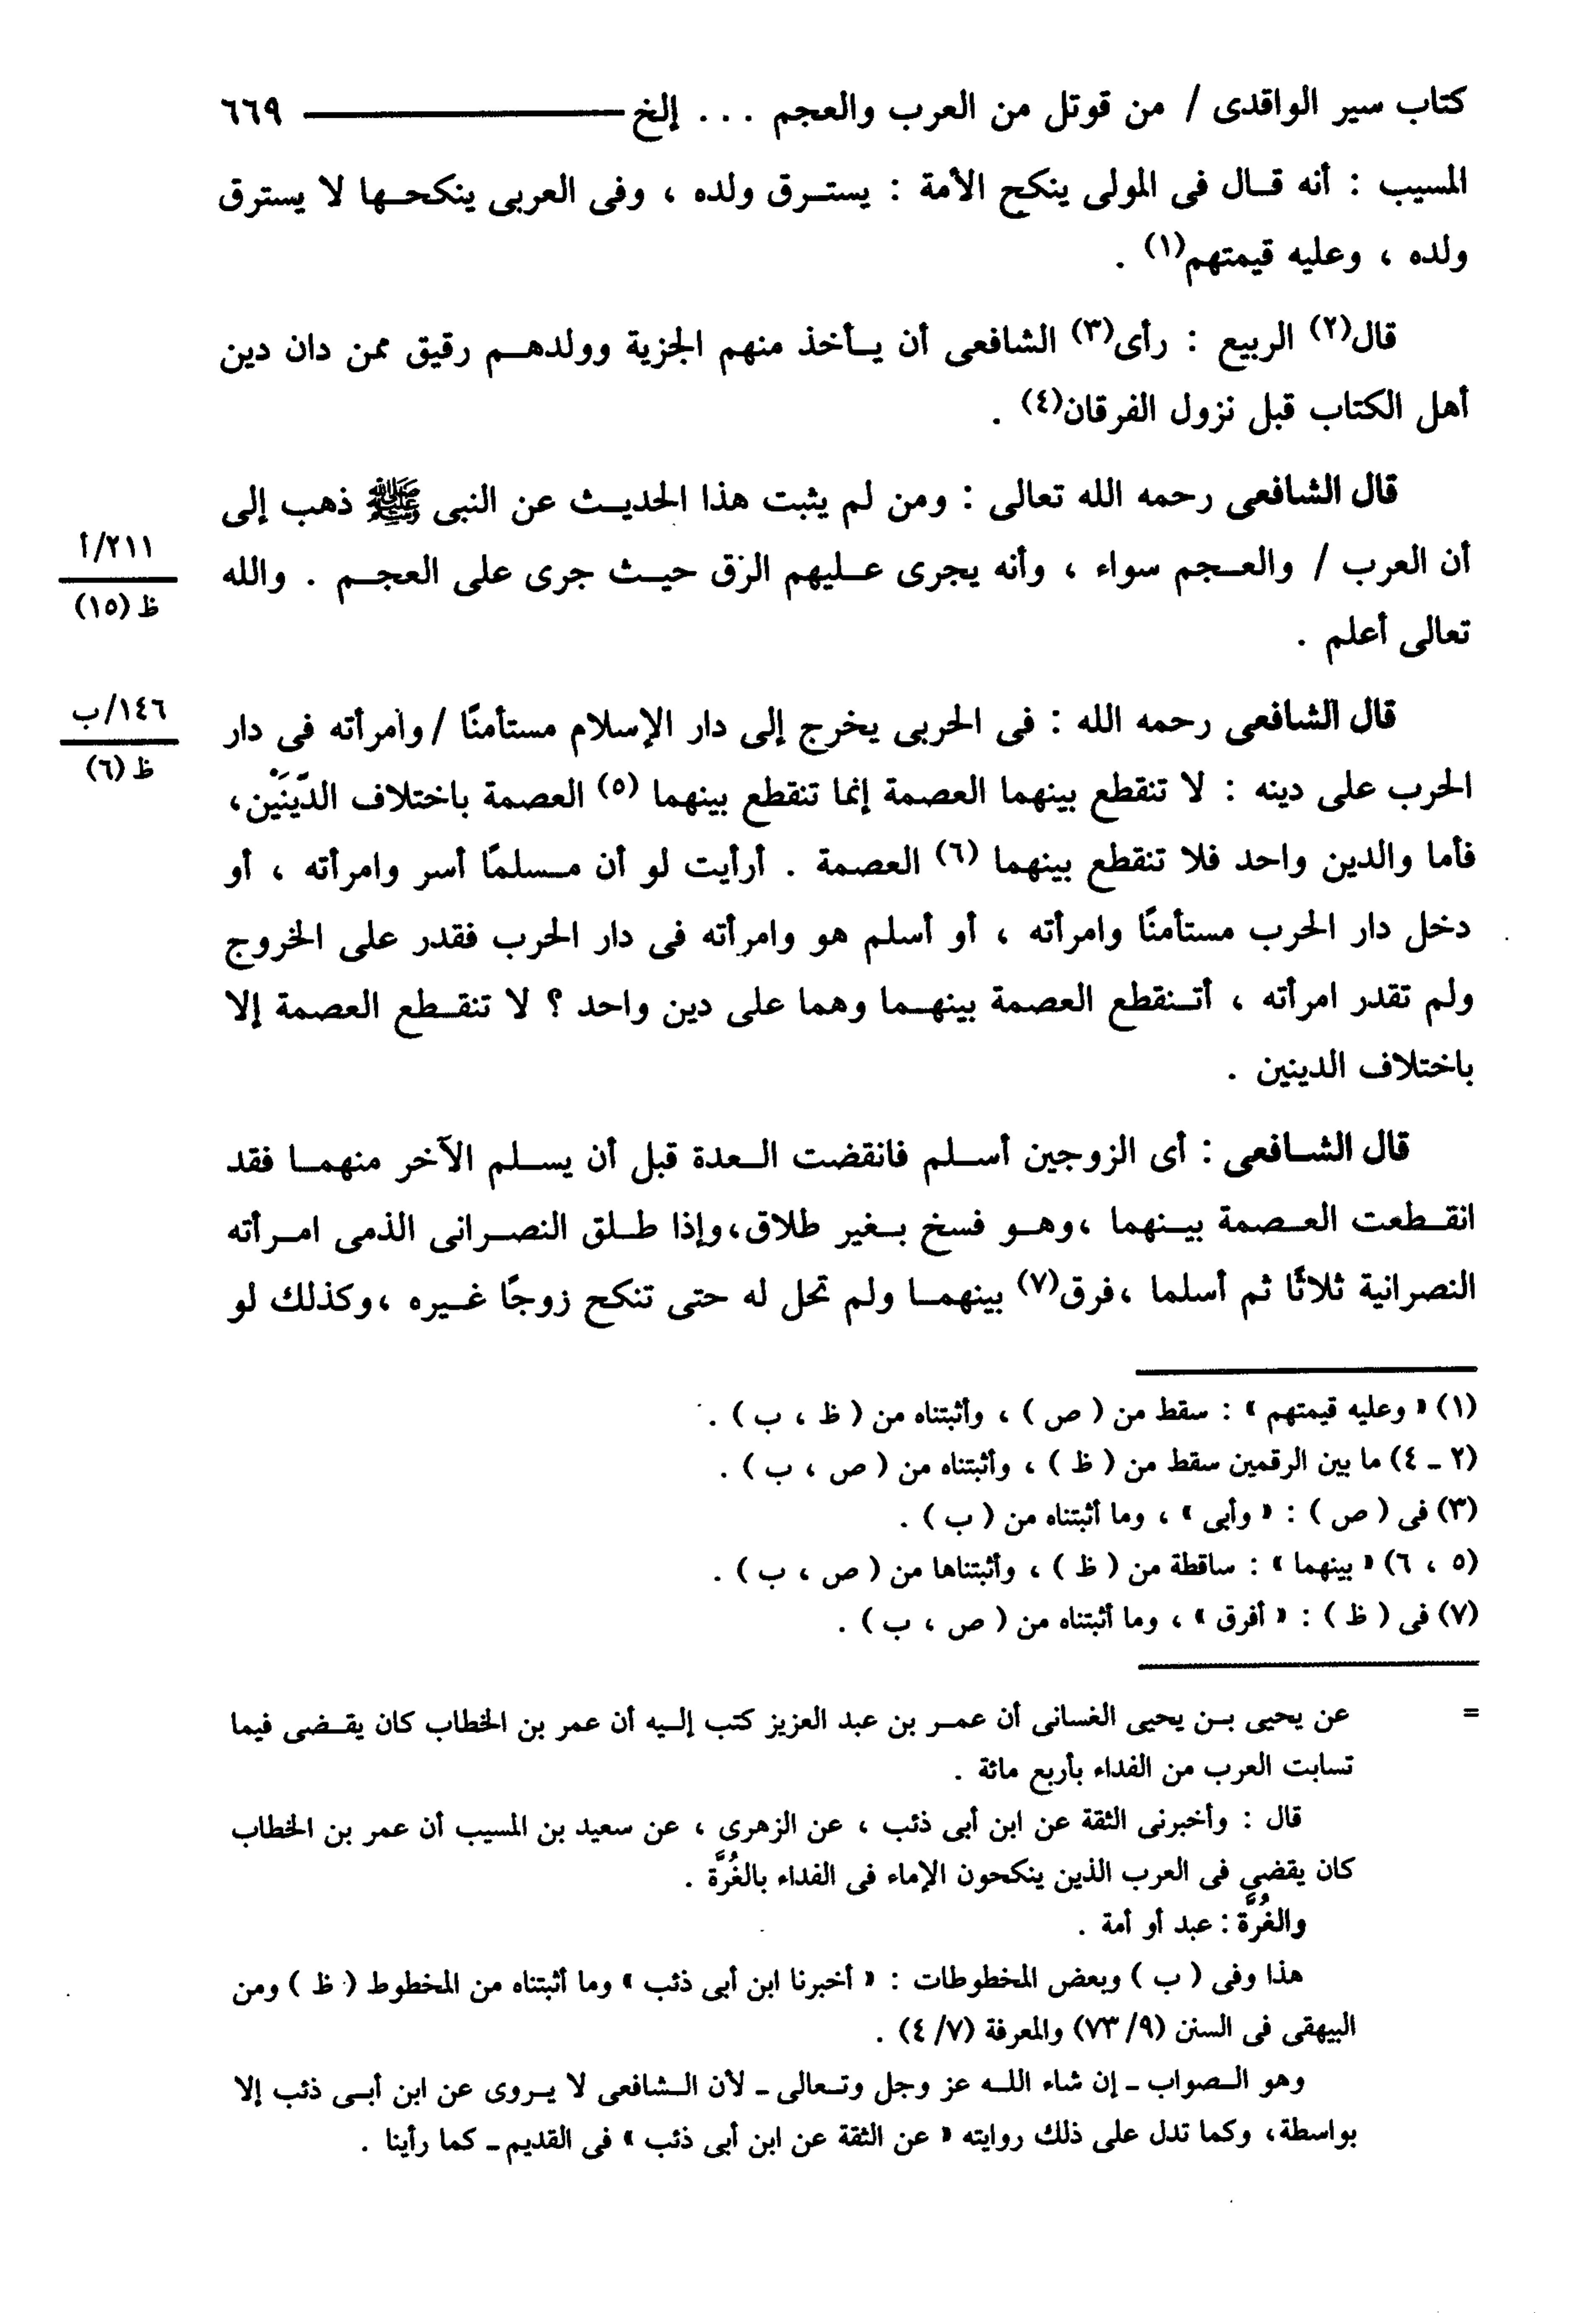 كتاب سير الواقدى / من قوتل من العرب والعجم ... إلخ ــــــــــــ ٦٦٩
المسيب : أنه قـال فى المولى ينكح الأمة : يستـرق ولده ، وفى العربى ينكحـها لا يسترق
ولده ، وعليه قيمتهم(١) .
قال(٢) الربيع : رأى(٣) الشافعى أن يـأخذ منهم الجزية وولدهـم رقيق ممن دان دين
أهل الكتاب قبل نزول الفرقان(٤) .
قال الشافعى رحمه الله تعالى : ومن لم يثبت هذا الحديـث عن النبى ﷺ ذهب إلى
أن العرب / والعـجم سواء ، وأنه يجرى عـليهم الرق حيـث جرى على العجـم . والله
٢١١/أ
ظ (١٥)
تعالى أعلم .
قال الشافعى رحمه الله : فى الحربى يخرج إلى دار الإسلام مستأمنًا /وامرأته فى دار
١٤٦/ب
ظ (٦)
الحرب على دينه : لا تنقطع بينهما العصمة إنما تنقطع بينهما (٥) العصمة باختلاف الدِّينَيْن،
فأما والدين واحد فلا تنقطع بينهما (٦) العصمة . أرأيت لو أن مـسلمًا أسر وامرأته ، أو
دخل دار الحرب مستأمنًا وامرأته ، أو أسلم هو وامرأته فى دار الحرب فقدر على الخروج
ولم تقدر امرأته ، أتـنقطع العصمة بينهـما وهما على دين واحد ؟ لا تنقـطع العصمة إلا
باختلاف الدينين .
قال الشـافعى : أى الزوجين أسـلم فانقضت الـعدة قبل أن يسـلم الآخر منهمـا فقد
انقـطعت العـصمة بيـنهما ،وهـو فسخ بـغير طلاق،وإذا طـلق النصـرانى الذمى امـرأته
النصرانية ثلاثًا ثم أسلما ،فرق(٧) بينهمـا ولم تحل له حتى تنكح زوجًا غـيره ،وكذلك لو
(١) « وعليه قيمتهم » : سقط من ( ص ) ، وأثبتناه من ( ظ ، ب ) .
(٢ ـ ٤) ما بين الرقمين سقط من ( ظ ) ، وأثبتناه من ( ص ، ب ) .
(٣) فى ( ص ) : « وأبى » ، وما أثبتناه من ( ب ) .
(٥ ، ٦) « بينهما » : ساقطة من ( ظ ) ، وأثبتناها من ( ص ، ب ) .
(٧) فى ( ظ ) : « أفرق » ، وما أثبتناه من ( ص ، ب ) .
= عن يحيى بـن يحيى الغسانى أن عمـر بن عبد العزيز كتب إلـيه أن عمر بن الخطاب كان يقـضى فيما
تسابت العرب من الفداء بأربع مائة .
قال : وأخبرنى الثقة عن ابن أبى ذئب ، عن الزهرى ، عن سعيد بن المسيب أن عمر بن الخطاب
كان يقضي فى العرب الذين ينكحون الإماء فى الفداء بالغُرَّة .
والغُرَّة : عبد أو أمة .
هذا وفى ( ب ) وبعض المخطوطات : « أخبرنا ابن أبى ذئب » وما أثبتناه من المخطوط ( ظ ) ومن
البيهقى فى السنن (٩/ ٧٣) والمعرفة (٧/ ٤) .
وهو الـصواب ـ إن شاء اللـه عز وجل وتـعالى ـ لأن الـشافعى لا يـروى عن ابن أبـى ذئب إلا
بواسطة، وكما تدل على ذلك روايته « عن الثقة عن ابن أبى ذئب » فى القديم ـ كما رأينا .